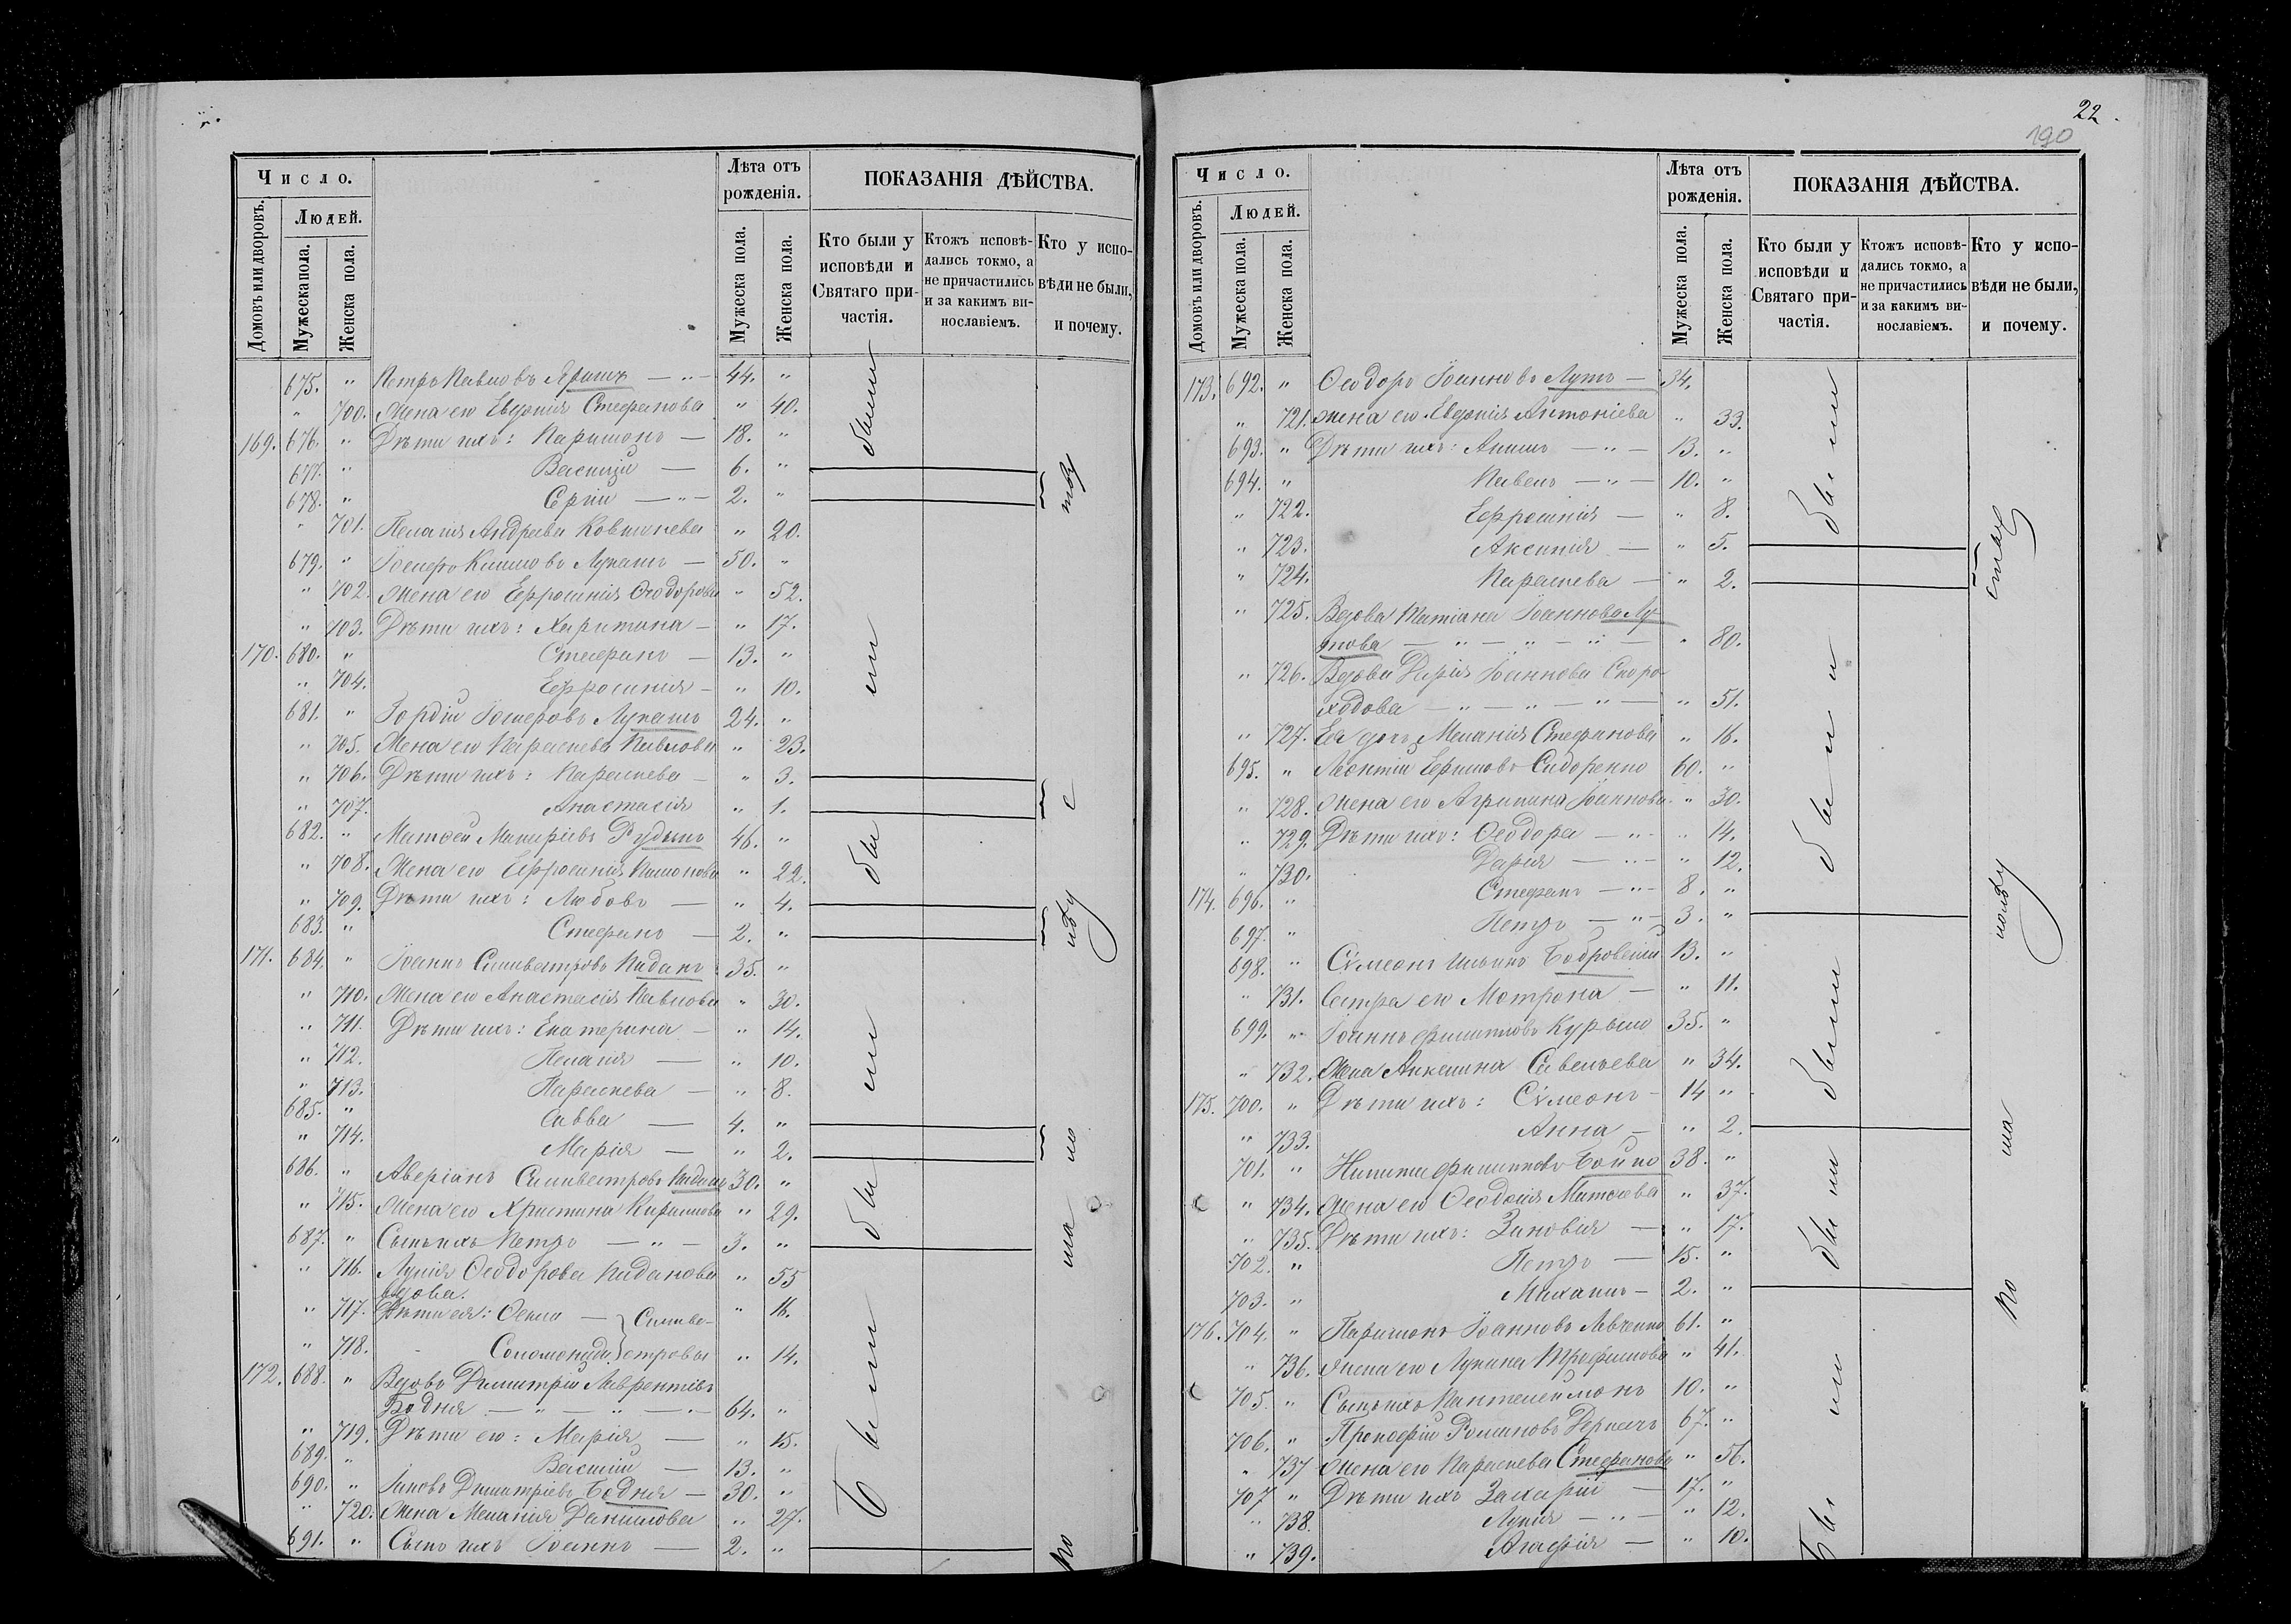 22.
190
Число.
Лѣта отъ рожденія.
ПОКАЗАНІЯ ДѢЙСТВА.
Домовъ или дворовъ.
Людей.
Мужеска пола.
Женска пола.
Мужеска пола.
Женска пола.
Кто были у исповѣди и Святаго причастія.
Ктожъ исповѣдались токмо, а не причастились и за какимъ винославіемъ.
Кто у исповѣди не были, и почему.
675. " Петръ Павловъ — " — 44. "
" 700. Жена его Евдокія Стефанова " 40.
169. 676. " Дѣти ихъ: Паримонъ — 18. "
677. " Василій — 6. "
678. " Сргій — " — 2. "
" 701. Пелагія Андреева " 20.
679. " Климовъ Лукашъ — 50. "
" 702. Жена его Евфросинія Ѳеодорова " 52.
" 703. Дѣти ихъ: Харитина — " 17.
170. 680. " Стефанъ — 13. "
" 704. Евфросинія — " 10.
681. " Гордій Лукашъ 24. "
" 705. Жена его Параскева Павлова " 23.
" 706. Дѣти ихъ: Параскева — " 3.
" 707. Анастасія " 1.
682. " Матѳей Рудыкъ 46. "
" 708. Жена его Евфросинія " 22.
" 709. Дѣти ихъ: Любовь — " 4.
683. " Стефанъ — 2. "
171. 684. " Іоаннъ Силивестровъ Каданъ 35. "
" 710. Жена его Анастасія Павлова " 30.
" 711. Дѣти ихъ: Екатерина — " 14.
" 712. Пелагія — " 10.
" 713. Параскева — " 8.
685. " Савва — 4. "
" 714. Марія — " 2.
686. " Аверіанъ Силивестровъ Каданъ 30. "
" 715. Жена его Христина Кириллова " 29.
687. " Сынъ ихъ Петръ — " — 3. "
" 716. Лукія Ѳеодорова Каданова " 55
вдова.
" 717. Дѣти ея: Ѳекла — } Силиве- " 16.
" 718. Соломонида } строва " 14.
172. 688. " Вдовъ Димитрій Лаврентіевъ
Бодня — " — " — 64. "
" 719. Дѣти его: Марія — " 15.
689. " Василій — 13. "
690. " Іаковъ Димитріевъ Бодня — 30. "
" 720. Жена Меланія Данилова " 27.
691. " Сынъ ихъ Іоаннъ — 2. "
были
были
были
Были
по малолѣтству
Число.
Лѣта отъ рожденія.
ПОКАЗАНІЯ ДѢЙСТВА.
Домовъ или дворовъ.
Людей.
Мужеска пола.
Женска пола.
Мужеска пола.
Женска пола.
Кто были у исповѣди и Святаго причастія.
Ктожъ исповѣдались токмо, а не причастились и за какимъ винославіемъ.
Кто у исповѣди не были, и почему.
173. 692. " Ѳеодоръ Іоанновъ Лутъ — 34.
" 721. Жена его Евдокія Антоніева " 33.
693. " Дѣти ихъ: — " — 13. "
694. " Павелъ — " — 10. "
" 722. Евфросинія — " 8.
" 723. Аксинія — " 5.
" 724. Параскева — " 2.
" 725. Вдова Татіана Іоаннова Лу-
това — " — " — " — " 80.
" 726. Вдова Дарія Іоаннова Скоро-
ходова — " — " — " — " 51.
" 727. Ея дочь Меланія Стефанова " 16.
695. " Леонтій Ефимовъ Сидоренко 60. "
" 728. Жена его Агрипина Іоаннова " 30.
" 729. Дѣти ихъ: Ѳеодора — " — " 14.
" 730. Дарія — " — " 12.
174. 696. " Стефанъ — " — 8. "
697. " Петръ — " — 3. "
698. " Сѵмеонъ Ильинъ 13. "
" 731. Сестра его Мотрона — " 11.
699. " Іоаннъ Филиповъ Курыло 35. "
" 732. Жена Акилина Савельева " 34.
175. 700. " Дѣти ихъ: Сѵмеонъ — 14 "
" 733. Анна — " 2.
701. " Никита Филиповъ Бойко 38. "
" 734. Жена его Ѳеодосія Матѳеева " 37.
" 735. Дѣти ихъ: Зиновія — " 17.
702. " Петръ — 15. "
703. " Михаилъ — 2. "
176. 704. " Паримонъ Іоанновъ Левченко 61. "
" 736. Жена его Лукина Трофимова " 41.
705. " Сынъ ихъ Пантелеймонъ 10. "
706. " Прокофій Романовъ Деркачъ 67. "
" 737 Жена его Параскева Стефанова " 56.
707 " Дѣти ихъ Захарій — 17. "
" 738. Лукія — " — " 12.
" 739. Агафія — " 10.
были
были
были
были
Были
по малолѣтству